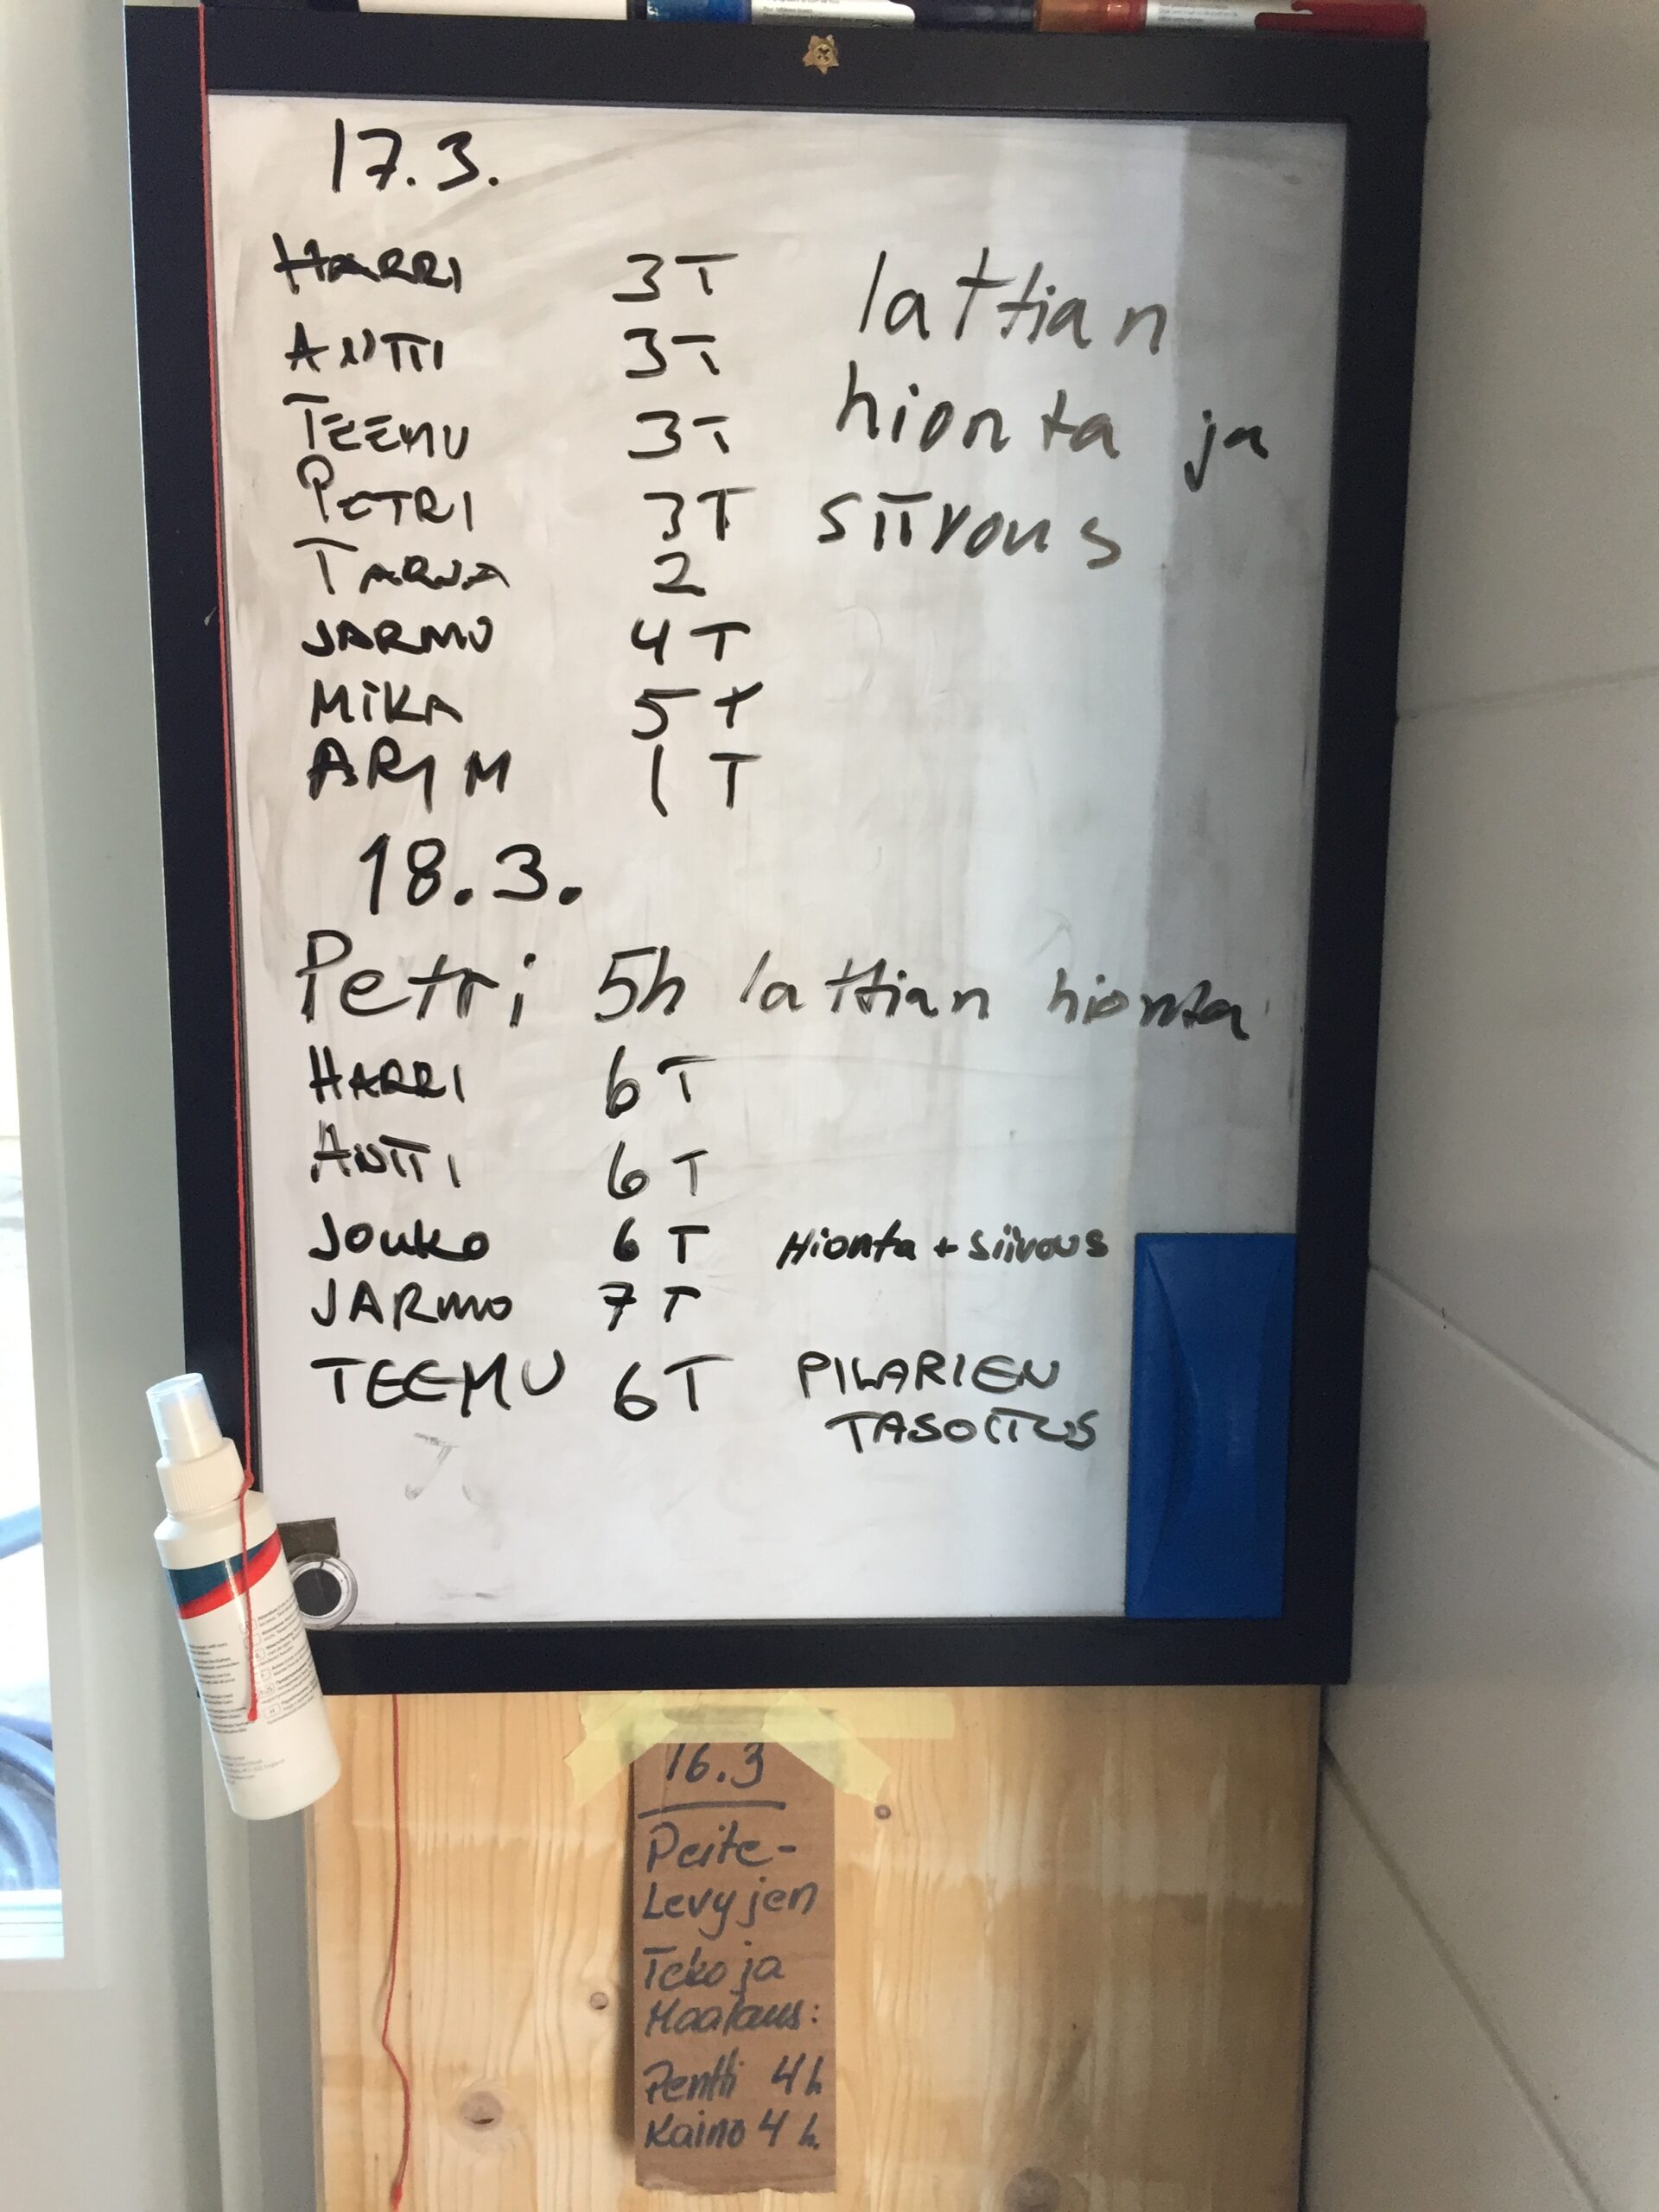 17.3.
HARRI 3T lattian
ANTTI 3T
TEEMU 3T hionta ja
PETRI 3T siivous
TARJA 2
JARMO 4 T
MiKA 5 t
ARI M 1 T
18.3.
Petri 5h lattian hionta
HARRI 6 T
ANTTI 6 T
Jouko 6 T Hionta + Siivous
JARMO 7 T
TEEMU 6T PILARIEN
TASOITUS
16.3
Peite-
Levyjen
Teko ja
Maalaus:
Pentti 4h
Kaino 4 h.